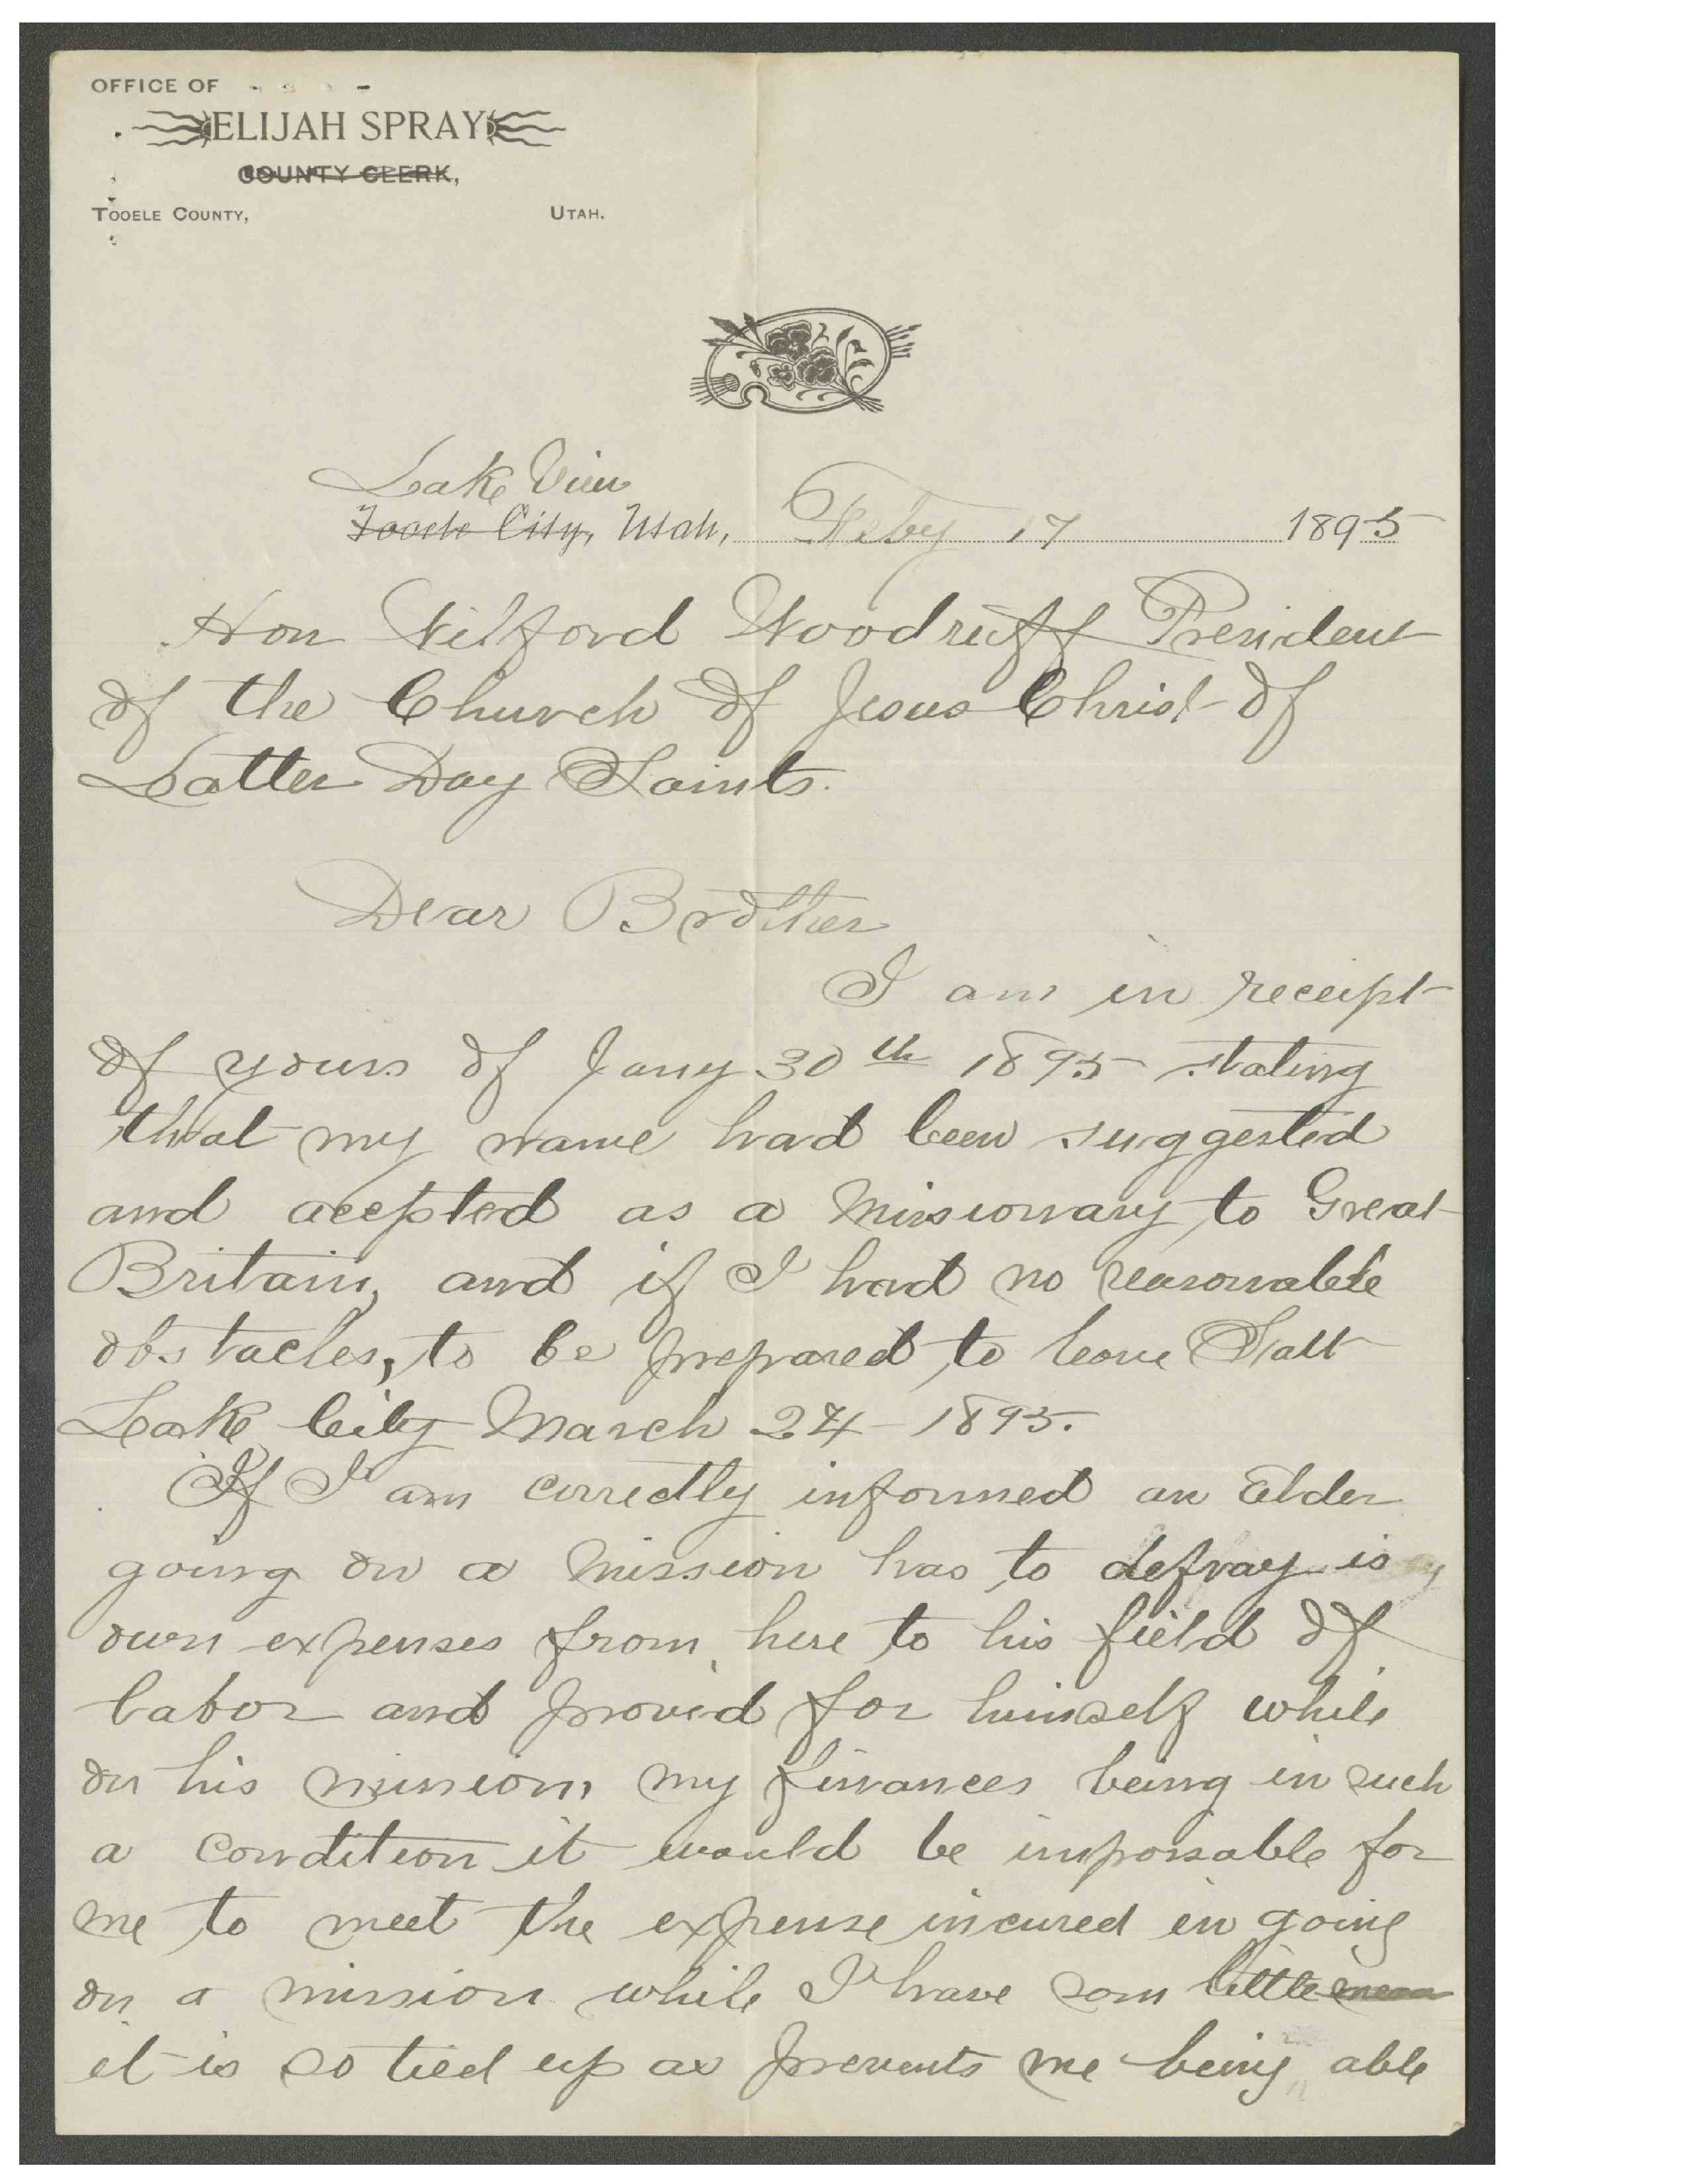 OFFICE OF
ELIJAH SPRAY
COUNTY CLERK,
TOOELE COUNTY, UTAH.
Lake View
Tooele City, Utah, Feby 17 1895
Hon Wilford Woodruff President
of the Church of Jesus Christ of
Latter Day Saints.
Dear Brother
I am in receipt
of yours of Jany 30th 1895 stating
that my name had been suggested
and acepted as a Missionary to Great
Britain, and if I had no reasonable
obstacles, to be prepared to leave Salt
Lake City March 24 1895.
If I am correctly informed an Elder
going on a Mission has to defray is
own expenses from here to his field of
labor and provid for himself while
on his mission, my finances being in such
a condition it would be impossable for
me to meet the expense incured in going
on a mission while I have som little
it is so tied up as prevents me being able